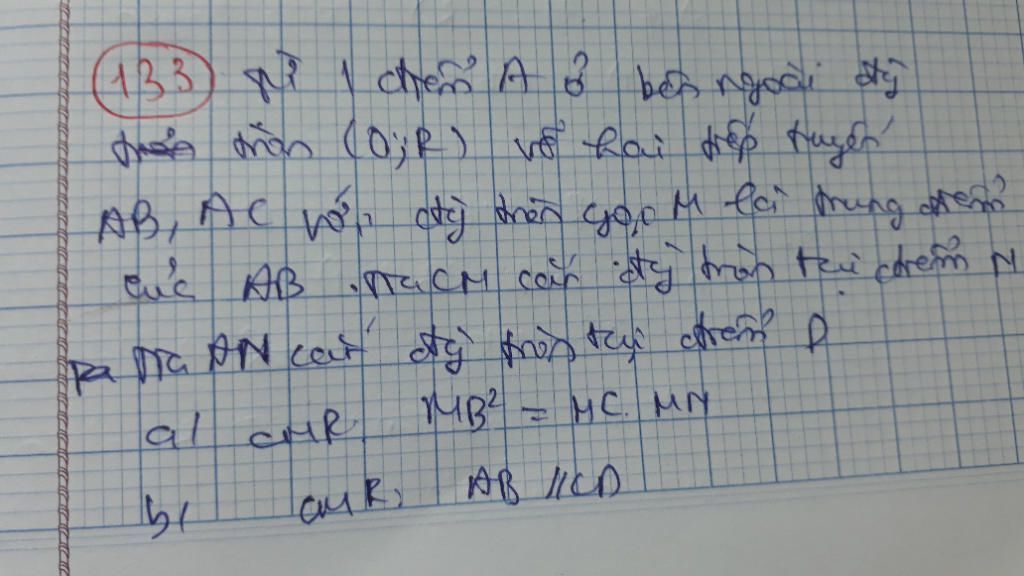 133 Từ 1 điểm A ở bên ngoài đg
tròn (O;R) vẽ hai tiếp tuyến
AB, AC với đg tròn gọi M là trung điểm
của AB. Tia CM cắt đg tròn tại điểm N
Tia AN cắt đg tròn tại điểm D
a/ CMR MB² = MC. MN
b/ CMR: AB // CD